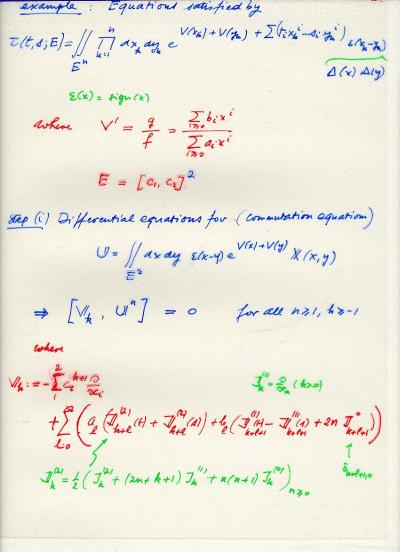 example : Equations satisfied by
τ(t,s;E) = ∬_{E^n} ∏_{k=1}^n dx_k dy_k e^{V(x_k)+V(y_k)+Σ(t_i x_k^i - s_i y_k^i)} ε(x_k-y_k)
Δ(x) Δ(y)
ε(x) = sign(x)
where V' = g/f = Σ_{i≥0} b_i x^i / Σ_{i≥0} a_i x^i
E = [c_1, c_2]^2
step (i) Differential equations for (commutation equation)
U = ∬_{E^2} dx dy ε(x-y) e^{V(x)+V(y)} X(x,y)
⇒ [V_k, U^n] = 0 for all n≥1, k≥-1
where
V_k := -Σ_1^2 c_i^{k+1} ∂/∂c_i
J_k^{(1)} = ∂/∂t_k (k>0)
+ Σ_{l≥0}^∞ ( a_l ( J_{k+l}^{(2)}(t) + J_{k+l}^{(2)}(s) ) + b_l ( J_{k+l+1}^{(1)}(t) - J_{k+l+1}^{(1)}(s) + 2n J_{k+l+1}^0 ) )
δ_{k+l+1,0}
J_k^{(2)} = 1/2 ( J_k^{(2)} + (2n+k+1) J_k^{(1)} + n(n+1) J_k^{(0)} )_{n≥0}